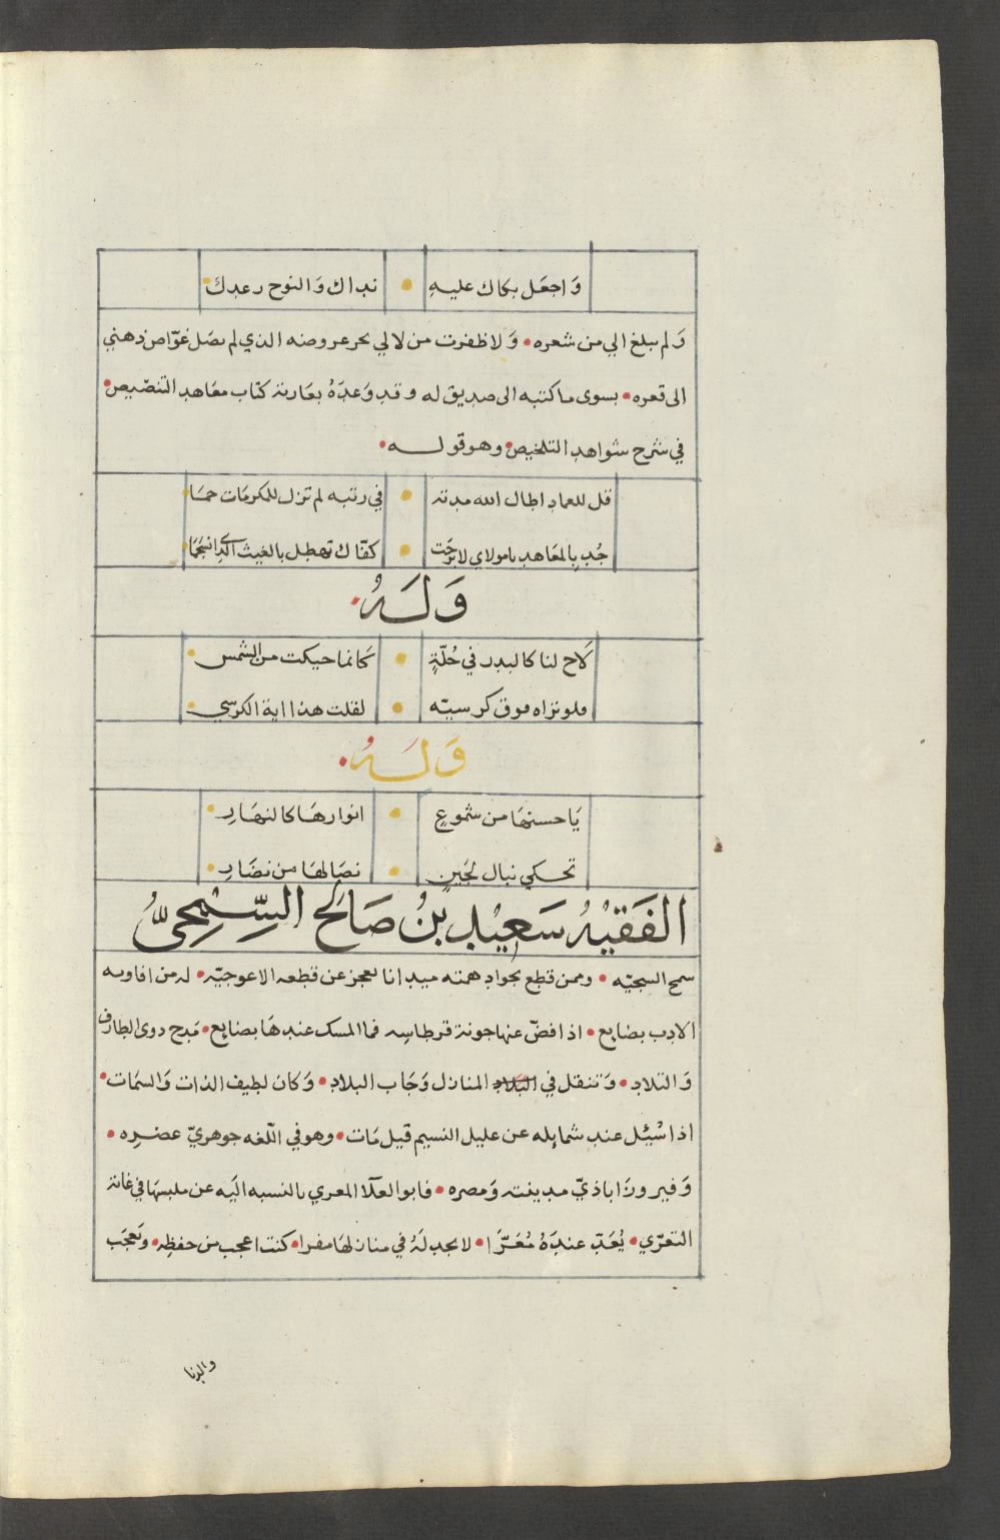 وَاجعَل بكاك عليهِ • نداك وَالنوح رعدك •
وَلم يبلغ الي من شعره • وَلا ظفرت من لالي بحر عروضه الذي لم يصَل غوّاص ذهني
الى قعره • بسوى ما كتبه الى صديق له وقد وَعدَهُ بعَارية كتاب معَاهد التنصّيص •
في شرح شواهد التلخيص • وهو قولـــه •
قل للعماد اطال الله مدته • في رتبه لم تزل للمكرمَات حمَا •
جُد بِالمعَاهد يامولاي لا برحَت • كفّاك تهطل بالغيث الذي انسجمَا •
وَلَــهُ •
لاح لنا كالبدر في حُلّةٍ • كَانما حيكت من الشمس •
فلو تراه فوق كرسيّه • لقلت هذا اية الكرسي •
وَلَــهُ •
يَا حسنهَا من شموعٍ • انوارهَا كالنهَارِ •
تحكي نبال لجَينٍ • نصَالهَا من نضَارِ •
الفَقيْهُ سَعيْد بنُ صَالحَ السِّمْحِىُّ
سمح السجيّه • وممن قطع بجواد همته ميدانا يعجز عن قطعه الاعوجيّه • له من افاويه
الادب بضايع • اذا فضّ عنها جونة قرطاسِه فما المسك عندهَا بضايع • مَدح ذوى الطارف
وَالتلاد • وَتنقل في المنازل وَجَاب البلاد • وَكان لطيف الذات وَالسمَات •
اذا سُئل عند شمايله عن عليل النسيم قيل مَات • وهو في اللّغه جوهريّ عصْره •
وَفيروزَاباذيّ مدينته وَمصره • فابوالعَلا المعري بالنسبه اليَه عن ملبسهَا في غاية
التعرّي • يُعَدّ عندَهُ مُعَرَّا • لا يجد لَهُ في منازلهَا مفرا • كنت اعجب من حفظِه • وَتعجَب
والدنا